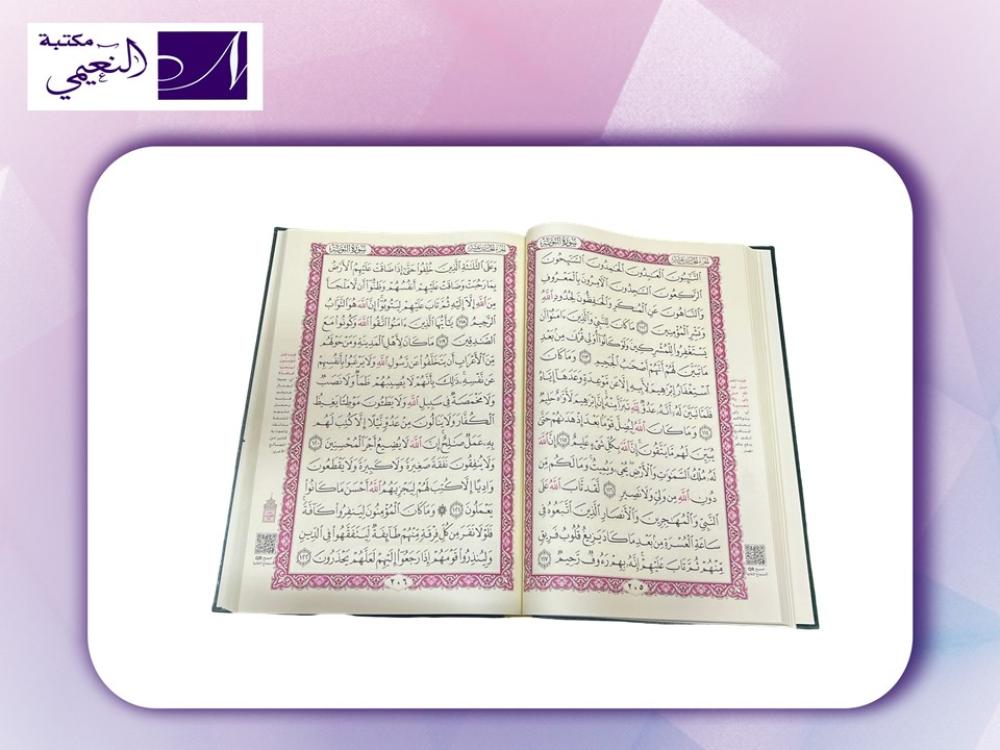 مكتبة
النعيمي
سورة التوبة
الجزء الحادي عشر
التَّٰٓئِبُونَ الْعَٰبِدُونَ الْحَٰمِدُونَ السَّٰٓئِحُونَ
الرَّٰكِعُونَ السَّٰجِدُونَ الْءَامِرُونَ بِالْمَعْرُوفِ
وَالنَّاهُونَ عَنِ الْمُنكَرِ وَالْحَٰفِظُونَ لِحُدُودِ اللَّهِ
وَبَشِّرِ الْمُؤْمِنِينَ ١١٢ مَا كَانَ لِلنَّبِيِّ وَالَّذِينَ ءَامَنُوٓا۟ أَن
يَسْتَغْفِرُوا۟ لِلْمُشْرِكِينَ وَلَوْ كَانُوٓا۟ أُو۟لِى قُرْبَىٰ مِنۢ بَعْدِ
مَا تَبَيَّنَ لَهُمْ أَنَّهُمْ أَصْحَٰبُ الْجَحِيمِ ١١٣ وَمَا كَانَ
اسْتِغْفَارُ إِبْرَٰهِيمَ لِأَبِيهِ إِلَّا عَن مَّوْعِدَةٍ وَعَدَهَآ إِيَّاهُ
فَلَمَّا تَبَيَّنَ لَهُۥٓ أَنَّهُۥ عَدُوٌّ لِّلَّهِ تَبَرَّأَ مِنْهُ إِنَّ إِبْرَٰهِيمَ لَأَوَّٰهٌ حَلِيمٌ
١١٤ وَمَا كَانَ اللَّهُ لِيُضِلَّ قَوْمًۢا بَعْدَ إِذْ هَدَىٰهُمْ حَتَّىٰ
يُبَيِّنَ لَهُم مَّا يَتَّقُونَ إِنَّ اللَّهَ بِكُلِّ شَىْءٍ عَلِيمٌ ١١٥ إِنَّ اللَّهَ
لَهُۥ مُلْكُ السَّمَٰوَٰتِ وَالْأَرْضِ يُحْىِۦ وَيُمِيتُ وَمَا لَكُم مِّن
دُونِ اللَّهِ مِن وَلِىٍّ وَلَا نَصِيرٍ ١١٦ لَّقَد تَّابَ اللَّهُ عَلَى
النَّبِىِّ وَالْمُهَٰجِرِينَ وَالْأَنصَارِ الَّذِينَ اتَّبَعُوهُ فِى
سَاعَةِ الْعُسْرَةِ مِنۢ بَعْدِ مَا كَادَ يَزِيغُ قُلُوبُ فَرِيقٍ
مِّنْهُمْ ثُمَّ تَابَ عَلَيْهِمْ إِنَّهُۥ بِهِمْ رَءُوفٌ رَّحِيمٌ ١١٧
٢٠٥
سورة التوبة
الجزء الحادي عشر
وَعَلَى الثَّلَٰثَةِ الَّذِينَ خُلِّفُوا۟ حَتَّىٰٓ إِذَا ضَاقَتْ عَلَيْهِمُ الْأَرْضُ
بِمَا رَحُبَتْ وَضَاقَتْ عَلَيْهِمْ أَنفُسُهُمْ وَظَنُّوٓا۟ أَن لَّا مَلْجَأَ
مِنَ اللَّهِ إِلَّآ إِلَيْهِ ثُمَّ تَابَ عَلَيْهِمْ لِيَتُوبُوٓا۟ إِنَّ اللَّهَ هُوَ التَّوَّابُ
الرَّحِيمُ ١١٨ يَٰٓأَيُّهَا الَّذِينَ ءَامَنُوا۟ اتَّقُوا۟ اللَّهَ وَكُونُوا۟ مَعَ
الصَّٰدِقِينَ ١١٩ مَا كَانَ لِأَهْلِ الْمَدِينَةِ وَمَنْ حَوْلَهُم
مِّنَ الْأَعْرَابِ أَن يَتَخَلَّفُوا۟ عَن رَّسُولِ اللَّهِ وَلَا يَرْغَبُوا۟ بِأَنفُسِهِمْ
عَن نَّفْسِهِۦ ذَٰلِكَ بِأَنَّهُمْ لَا يُصِيبُهُمْ ظَمَأٌ وَلَا نَصَبٌ
وَلَا مَخْمَصَةٌ فِى سَبِيلِ اللَّهِ وَلَا يَطَـُٔونَ مَوْطِئًا يَغِيظُ
الْكُفَّارَ وَلَا يَنَالُونَ مِنْ عَدُوٍّ نَّيْلًا إِلَّا كُتِبَ لَهُم
بِهِۦ عَمَلٌ صَٰلِحٌ إِنَّ اللَّهَ لَا يُضِيعُ أَجْرَ الْمُحْسِنِينَ ١٢٠
وَلَا يُنفِقُونَ نَفَقَةً صَغِيرَةً وَلَا كَبِيرَةً وَلَا يَقْطَعُونَ
وَادِيًا إِلَّا كُتِبَ لَهُمْ لِيَجْزِيَهُمُ اللَّهُ أَحْسَنَ مَا كَانُوا۟
يَعْمَلُونَ ١٢١ وَمَا كَانَ الْمُؤْمِنُونَ لِيَنفِرُوا۟ كَآفَّةً
فَلَوْلَا نَفَرَ مِن كُلِّ فِرْقَةٍ مِّنْهُمْ طَآئِفَةٌ لِّيَتَفَقَّهُوا۟ فِى الدِّينِ
وَلِيُنذِرُوا۟ قَوْمَهُمْ إِذَا رَجَعُوٓا۟ إِلَيْهِمْ لَعَلَّهُمْ يَحْذَرُونَ ١٢٢
٢٠٦